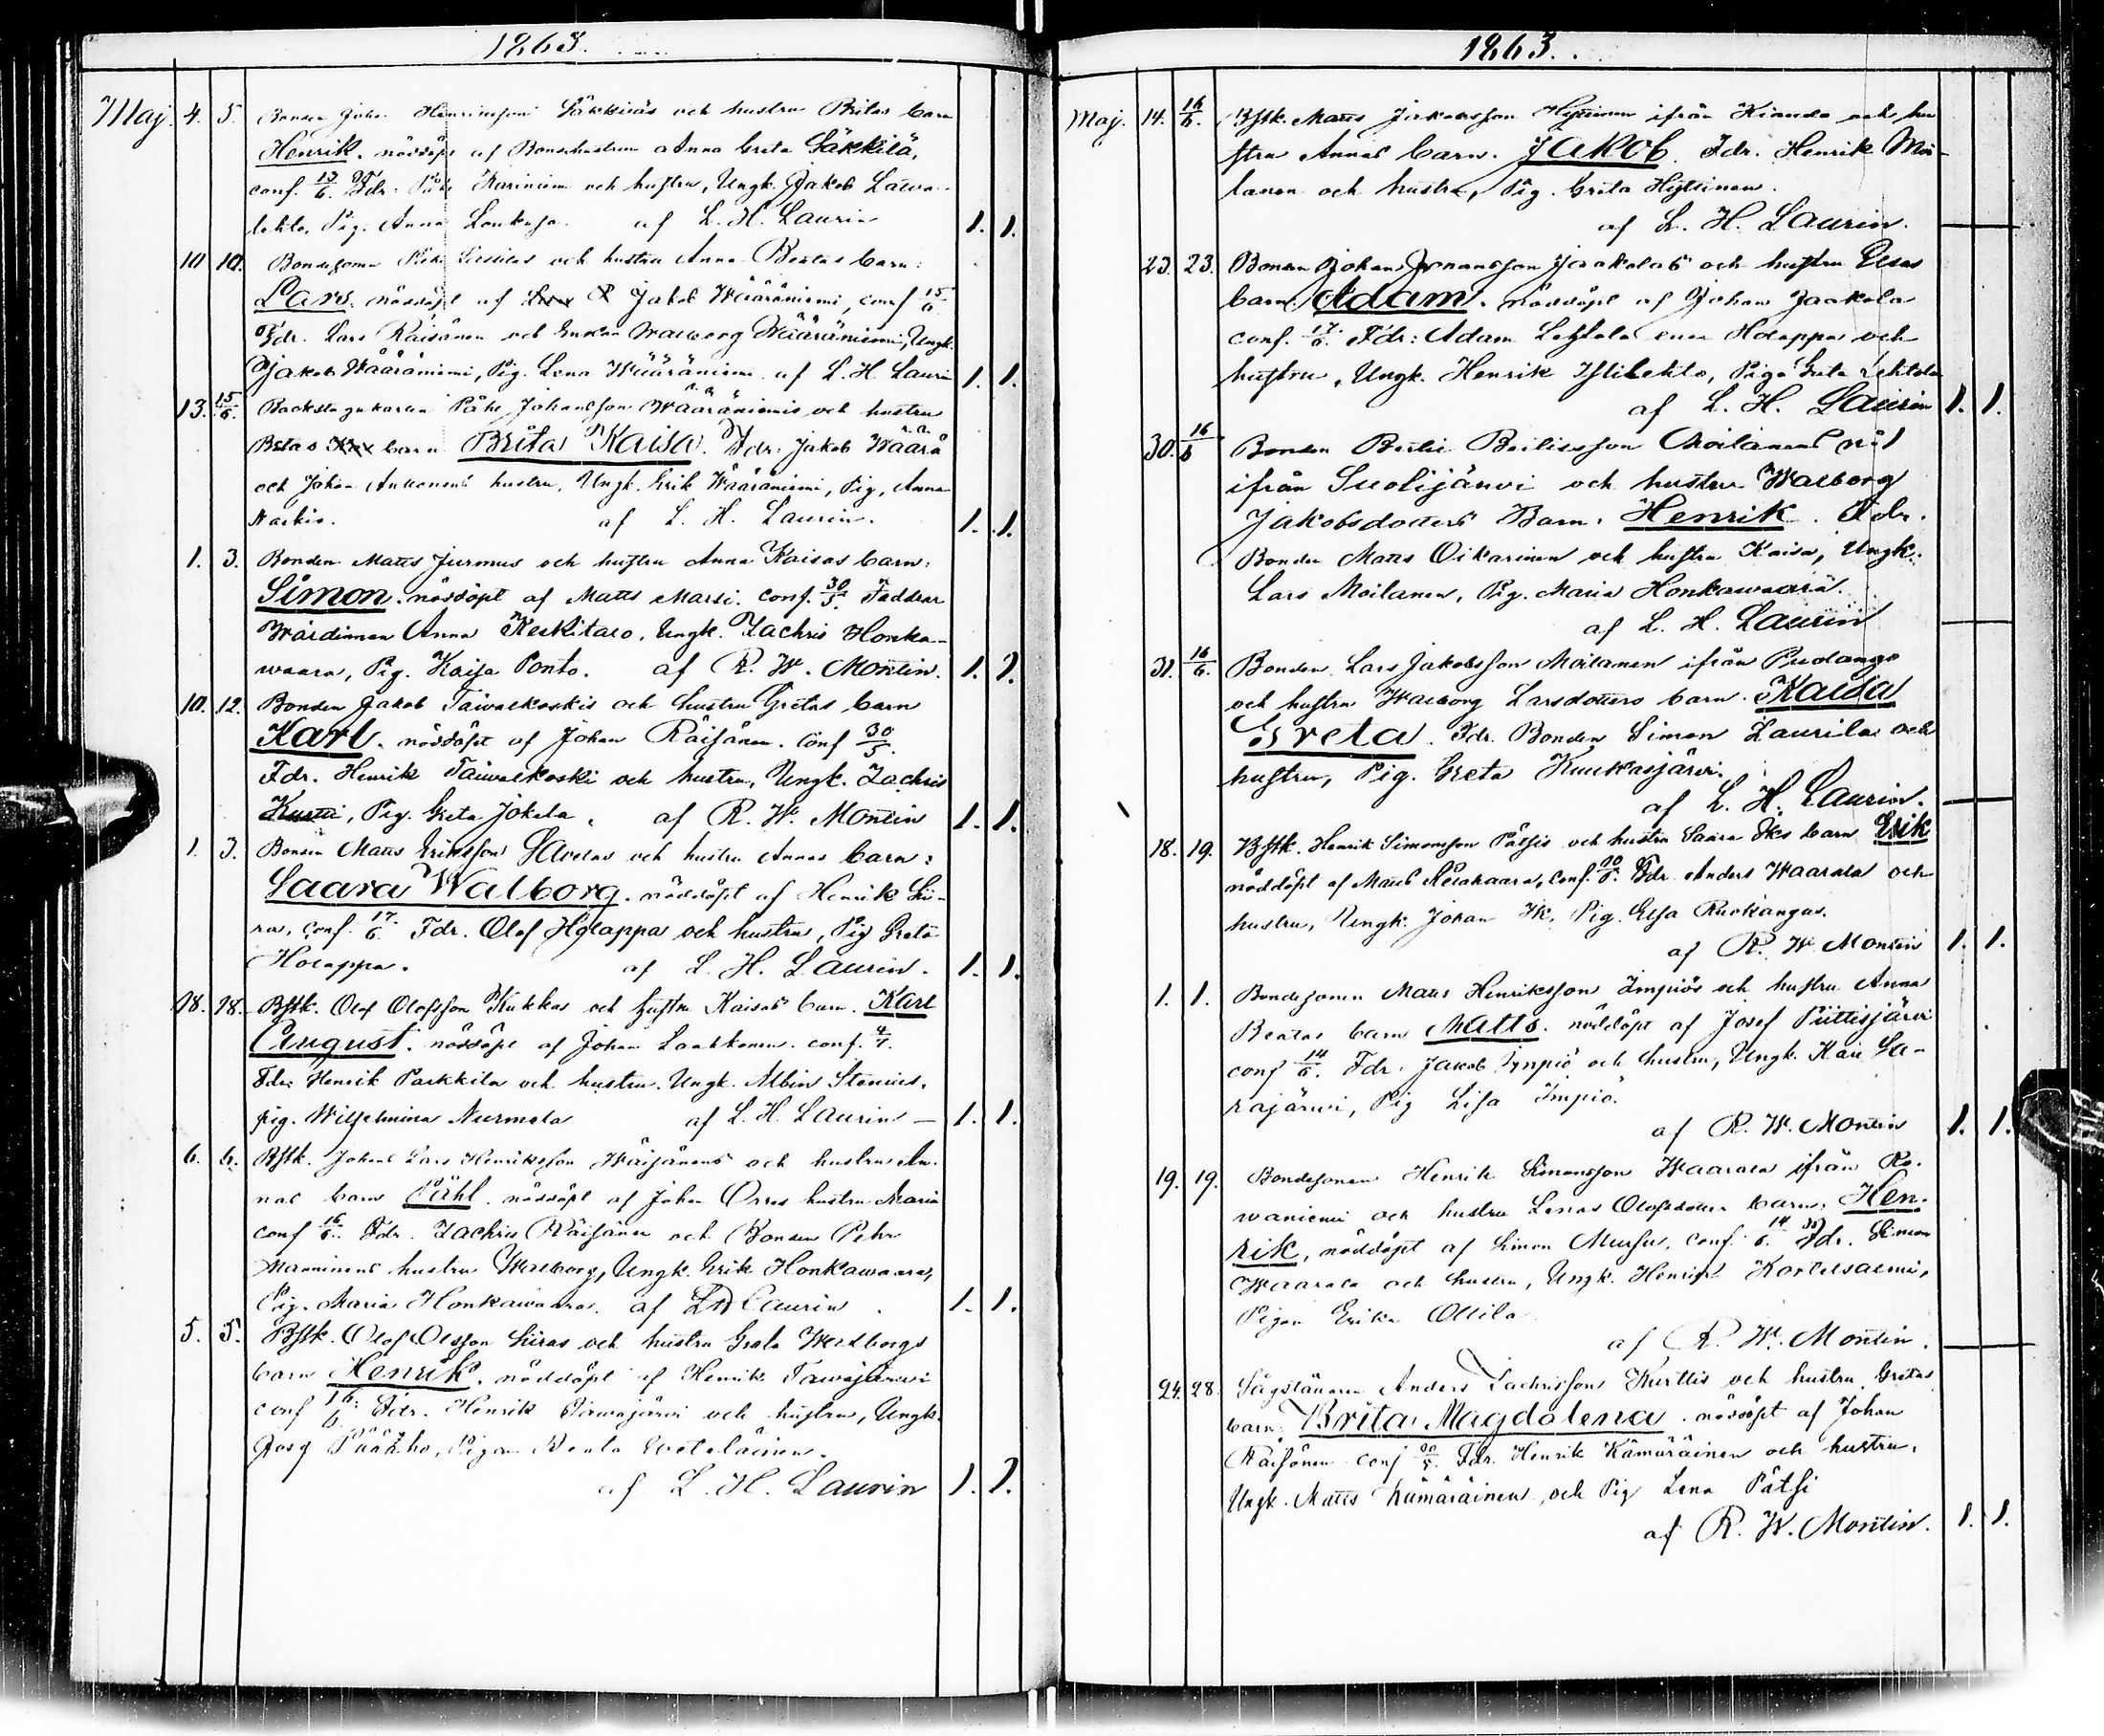 1863.
Maj. 4. 5. Bonden Johan Henriksson Säkkiläs och hustru Britas barn
Henrik. nöddöpt af Bondehustrun Anna Greta Säkkilä,
conf. 15/6. Fdr. Påhl Karinien och hustru, Ungk. Jakob Laiva-
lehto, Pig. Anna Loukusa. af L. H. Laurin 1. 1.
10 10. Bondesonen och hustru Anna Beatas barn:
Lars. nöddöpt af Jakob Wääräniemi, conf 15/6.
Fdr. Lars Räisänen och Enkan Walborg Wääräniemi, Ungk.
Jakob Wääräniemi, Pig. Lena Wääräniemi af L. H. Laurin 1. 1.
13. 15/6. Backstugukarlen Påhl Johansson Wääräniemis och hustru
Betas barn Brita Kaisa. Fdr. Jakob Wäärä
och Johan hustru, Ungk. Erik Wääräniemi, Pig. Anna
Naekio. af L. H. Laurin. 1. 1.
1. 3. Bonden Matts Jurmus och hustru Anna Kaisas barn:
Simon. nöddöpt af Matts Marsi. conf. 30/5. Faddrar
Wärdinnan Anna Keskitalo, Ungk. Zachris Honka-
waara, Pig. Kaisa Ponto. af R. W. Montin. 1. 1.
10. 12. Bonden Jakob Taiwalkoskis och hustru Gretas barn
Karl. nöddöpt af Johan Räisänen. conf 30/5.
Fdr. Henrik Taiwalkoski och hustru, Ungk. Zachris
Kurtti, Pig. Greta Jokela. af R. W. Montin 1. 1.
1. 3. Bonden Matts Eriksson och hustru Annas barn:
Saara Walborg. nöddöpt af Henrik Sii-
ra, conf. 17/6. Fdr. Olof Holappa och hustru, Pig Greta
Holappa. af L. H. Laurin. 1. 1.
18. 18. Bstk. Olof Olofsson Kukkas och hustru Kaisas barn. Karl
August. nöddöpt af Johan Laakkonen. conf.
Fdr. Henrik Parkkila och hustru. Ungk. Albin Stenius,
pig. Wilhelmina Nurmela af L. H. Laurin 1. 1.
6. 6. Bstk. Johan Lars Henriksson Wäisänens och hustru An-
nas barn Påhl. nöddöpt af Johan Orres hustru Maria
conf 16/6. Fdr. Zachris Räisänen och Bonden Pehr
Manninens hustru Walborg, Ungk. Erik Honkawaara,
Pig. Maria Honkawaara. af L H Laurin. 1. 1.
5. 5. Bstk. Olof Olsson Siiras och hustru Greta Walborgs
barn Henrik. nöddöpt af Henrik Tawajärwi
conf 16/6. Fdr. Henrik Tawajärwi och hustru, Ungk.
Josef Pigan Beata
af L. H. Laurin 1. 1.
1863.
Maj. 14. 16/6. Bstk. Matts Jakobsson Hyttinen ifrån Kianda och hu
stru Annas barn. Jakob. Fdr. Henrik Moi-
lanen och hustru, Pig. Greta Hyttinen.
af L. H. Laurin.
23. 23. Bonden Johan Johansson Jaakolas och hustru Elsas
barn. Adam. nöddöpt af Johan Jaakola
conf. 17/6. Fdr: Adam Holappa och
hustru, Ungk. Henrik Ylilehto, Piga Greta Lehtola
af L. H. Laurin 1. 1.
30. 16/6 Bonden Bertil Bertilsson Moilanens
ifrån Suolijärvi och hustru Walborg
Jakobsdotters Barn. Henrik. Fdr.
Bonden Matts Oikarinen och hustru Kaisa, Ungk.
Lars Moilanen, Pig. Maria Honkawaara.
af L. H. Laurin
31. 16/6. Bonden Lars Jakobsson Moilanen ifrån Pudango
och hustru Walborg Larsdotters barn. Kaisa
Greta. Fdr. Bonden Simon Laurila och
hustru, Pig. Greta Kuukasjärvi.
af L. H. Laurin.
18. 19. Bstk. Henrik Simonsson Pätsis och hustru Saara barn Erik
nöddöpt af Matts conf. Fdr. Anders Waarala och
hustru, Ungk. Johan Pig. Elsa Ruokangas.
af R. W. Montin 1. 1.
1. 1. Bondesonen Matts Henriksson Impiös och hustru Anna
Beatas barn Matts. nöddöpt af Josef Piittisjärvi
conf 14/6. Fdr. Jakob Impiö och hustru, Ungk. Karl Sa-
rajärwi, Pig Lisa Impiö.
af R. W. Montin 1. 1.
19. 19. Bondesonen Henrik Simonsson Waarala ifrån Ro-
waniemi och hustru Lenas Olofsdotter barn. Hen-
rik, nöddöpt af Simon Mursu. conf. 14/6. Fdr. Simon
Waarala och hustru, Ungk. Henrik Kortelsalmi,
Pigan Erika Ollila
af R. W. Montin.
24. 28. Anders Zachrisson Kurttis och hustru Gretas
barn. Brita Magdalena. nöddöpt af Johan
Räisänen conf 30/5. Fdr. Henrik Kämäräinen och hustru.
Ungk. Matts Kämäräinen, och Pig Lena Pätsi
af R. W. Montin. 1. 1.